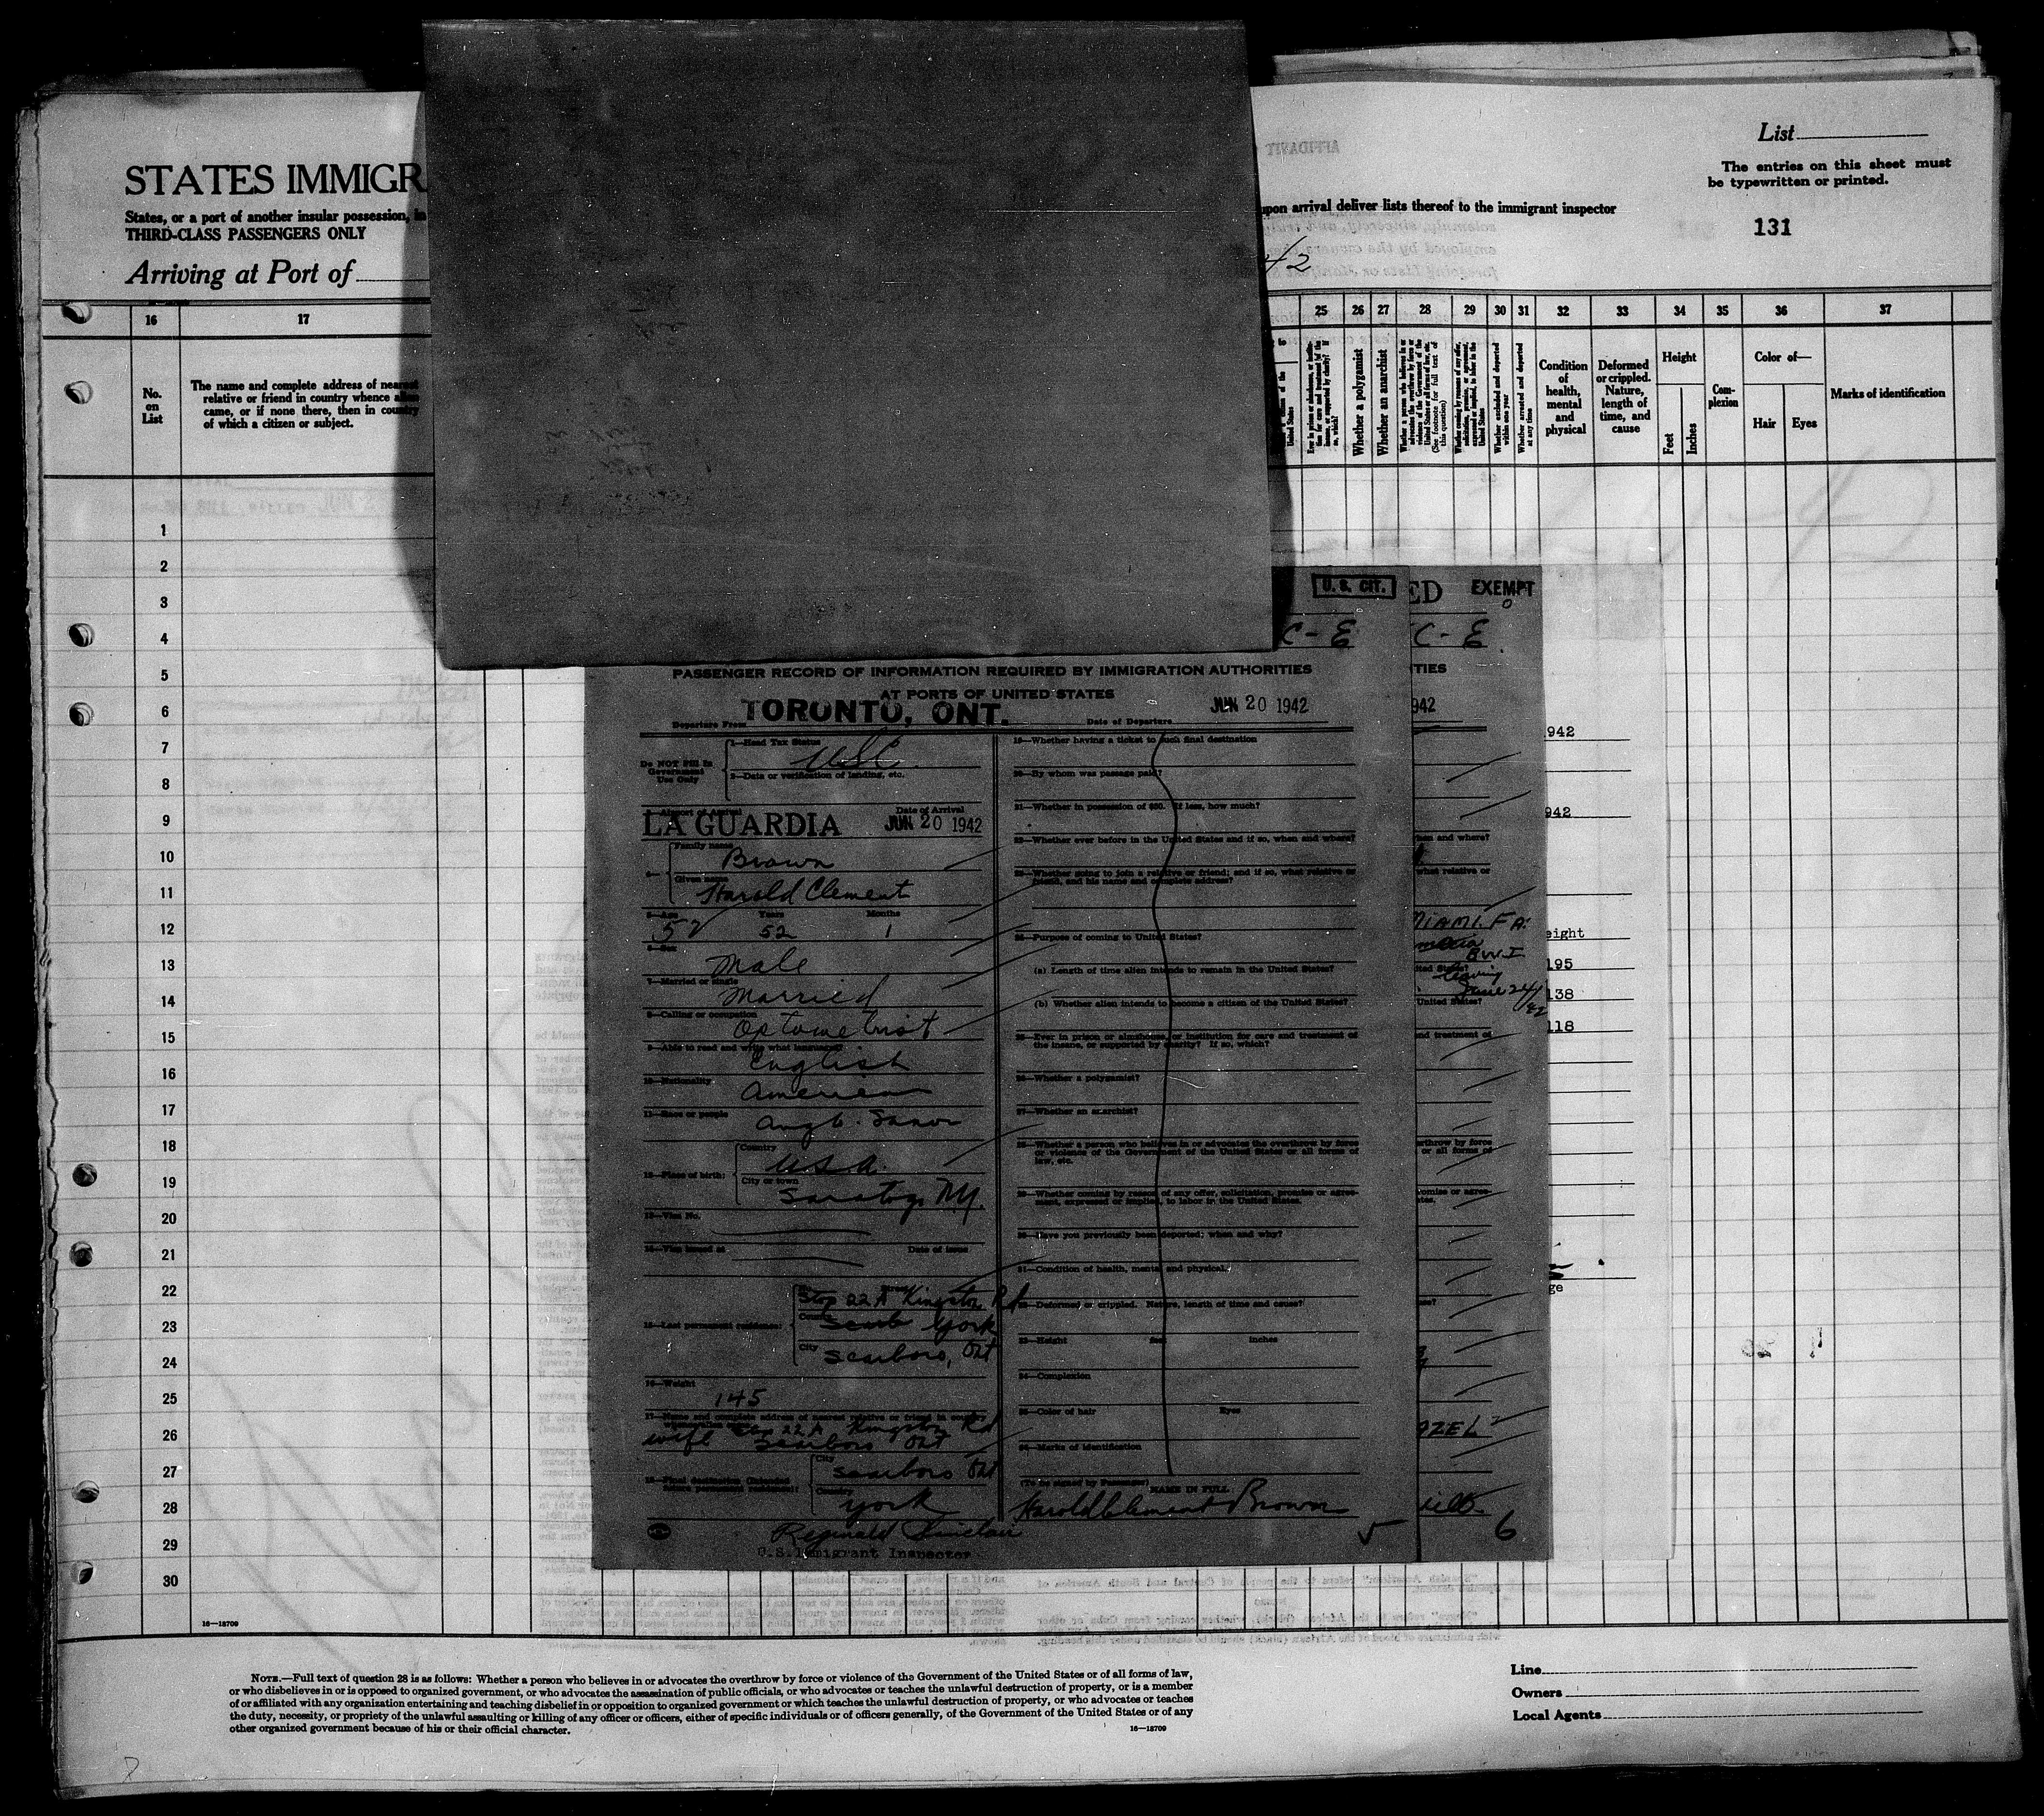 List
The entries on this sheet must
be typewritten or printed.
131
STATES IMMIGR
States, or a port of another insular possession, in
THIRD-CLASS PASSENGERS ONLY
upon arrival deliver lists thereof to the immigrant inspector
Arriving at Port of
42
AFFIDAVIT
16 17 25 26 27 28 29 30 31 32 33 34 35 36 37
No.
on
List
The name and complete address of nearest
relative or friend in country whence alien
came, or if none there, then in country
of which a citizen or subject.
Whether a polygamist
Whether an anarchist
(See footnote for full text of
this question)
Whether excluded and deported
within one year
Whether arrested and deported
at any time
Condition
of
health,
mental
and
physical
Deformed
or crippled.
Nature,
length of
time, and
cause
Height
Feet
Inches
Com-
plexion
Color of—
Hair
Eyes
Marks of identification
1
2
3
4
5
6
7
8
9
10
11
12
13
14
15
16
17
18
19
20
21
22
23
24
25
26
27
28
29
30
16—18709
U. S. CIT.
C - E
PASSENGER RECORD OF INFORMATION REQUIRED BY IMMIGRATION AUTHORITIES
AT PORTS OF UNITED STATES
Departure From TORONTO, ONT.
Date of Departure JUN 20 1942
Do NOT Fill In
Government
Use Only
1—Head Tax Status
USC.
2—Data or verification of landing, etc.
3—Airport of Arrival Date of Arrival
LA GUARDIA JUN 20 1942
4— Family name
Brown
Given name
Harold Clement
5—Age Years Months
52 52 1
6—Sex
Male
7—Married or single
Married
8—Calling or occupation
Optometrist
9—Able to read and write what language?
English
10—Nationality
American
11—Race or people
Anglo-Saxon
12—Place of birth: Country
U.S.A.
City or town
Saratoga N.Y.
13—Visa No.
14—Visa issued at Date of issue
15—Last permanent residence:
Stop 22 A Kingston Rd
County York
City Scarboro, Ont
16—Weight
145
17—Name and complete address of nearest relative or friend in country
Stop 22 A Kingston Rd
wife Scarboro Ont
18—Final destination (Intended
future permanent residence):
City
Scarboro Ont
Country
York
Reginald Sinclair
U.S. Immigrant Inspector
19—Whether having a ticket to such final destination
20—By whom was passage paid?
21—Whether in possession of $50. If less, how much?
22—Whether ever before in the United States and if so, when and where?
23—Whether going to join a relative or friend; and if so, what relative or
friend, and his name and complete address?
24—Purpose of coming to United States?
(a) Length of time alien intends to remain in the United States?
(b) Whether alien intends to become a citizen of the United States?
25—Ever in prison or almshouse, or institution for care and treatment of
the insane, or supported by charity? If so, which?
26—Whether a polygamist?
27—Whether an anarchist?
28—Whether a person who believes in or advocates the overthrow by force
or violence of the Government of the United States or all forms of
law, etc.
29—Whether coming by reason of any offer, solicitation, promise or agree-
ment, expressed or implied, to labor in the United States.
30—Have you previously been deported; when and why?
31—Condition of health, mental and physical.
32—Deformed or crippled. Nature, length of time and cause?
33—Height feet inches
34—Complexion
35—Color of hair Eyes
36—Marks of identification
(To be signed by Passenger)
NAME IN FULL
Harold Clement Brown
ED EXEMPT
C - E
TIES
942
when and where?
what relative or
MIAMI. FA.
B.W.I
ited States?
leaving
June 24/
42
United States?
and treatment of
throw by force
or all forms of
romise or agree-
tes.
ZEL
6
942
942
eight
195
138
118
ge
NOTE.—Full text of question 28 is as follows: Whether a person who believes in or advocates the overthrow by force or violence of the Government of the United States or of all forms of law,
or who disbelieves in or is opposed to organized government, or who advocates the assassination of public officials, or who advocates or teaches the unlawful destruction of property, or is a member
of or affiliated with any organization entertaining and teaching disbelief in or opposition to organized government or which teaches the unlawful destruction of property, or who advocates or teaches
the duty, necessity, or propriety of the unlawful assaulting or killing of any officer or officers, either of specific individuals or of officers generally, of the Government of the United States or of any
other organized government because of his or their official character.
16—18709
Line
Owners
Local Agents